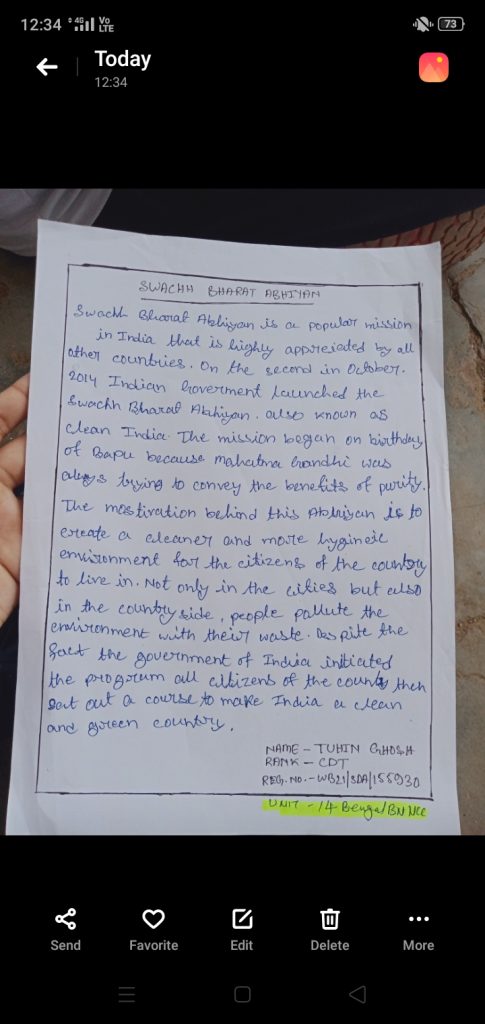 12:34 4G Vo LTE 73
Today
12:34
SWACHH BHARAT ABHIYAN
Swachh Bharat Abhiyan is a popular mission
in India that is highly appreiated by all
other countries. On the second in October.
2014 Indian Goverment launched the
Swachh Bharat Abhiyan. also known as
clean India. The mission began on birthday
of Bapu because mahatma Gandhi was
trying to convey the benefits of purity.
The mostivation behind this Abhiyan is to
create a cleaner and more hygineic
environment for the citizens of the country
to live in. Not only in the cities but also
in the country side, people pollute the
environment with their waste. Des pite the
fact the government of India initiated
the program all citizens of the county then
sat out a course to make India a clean
and green country.
NAME - TUHIN GHOSH
RANK - CDT
REG. NO. - WB21/SDA/155930
UNIT - 14 Bengal BN NCC
Send Favorite Edit Delete More